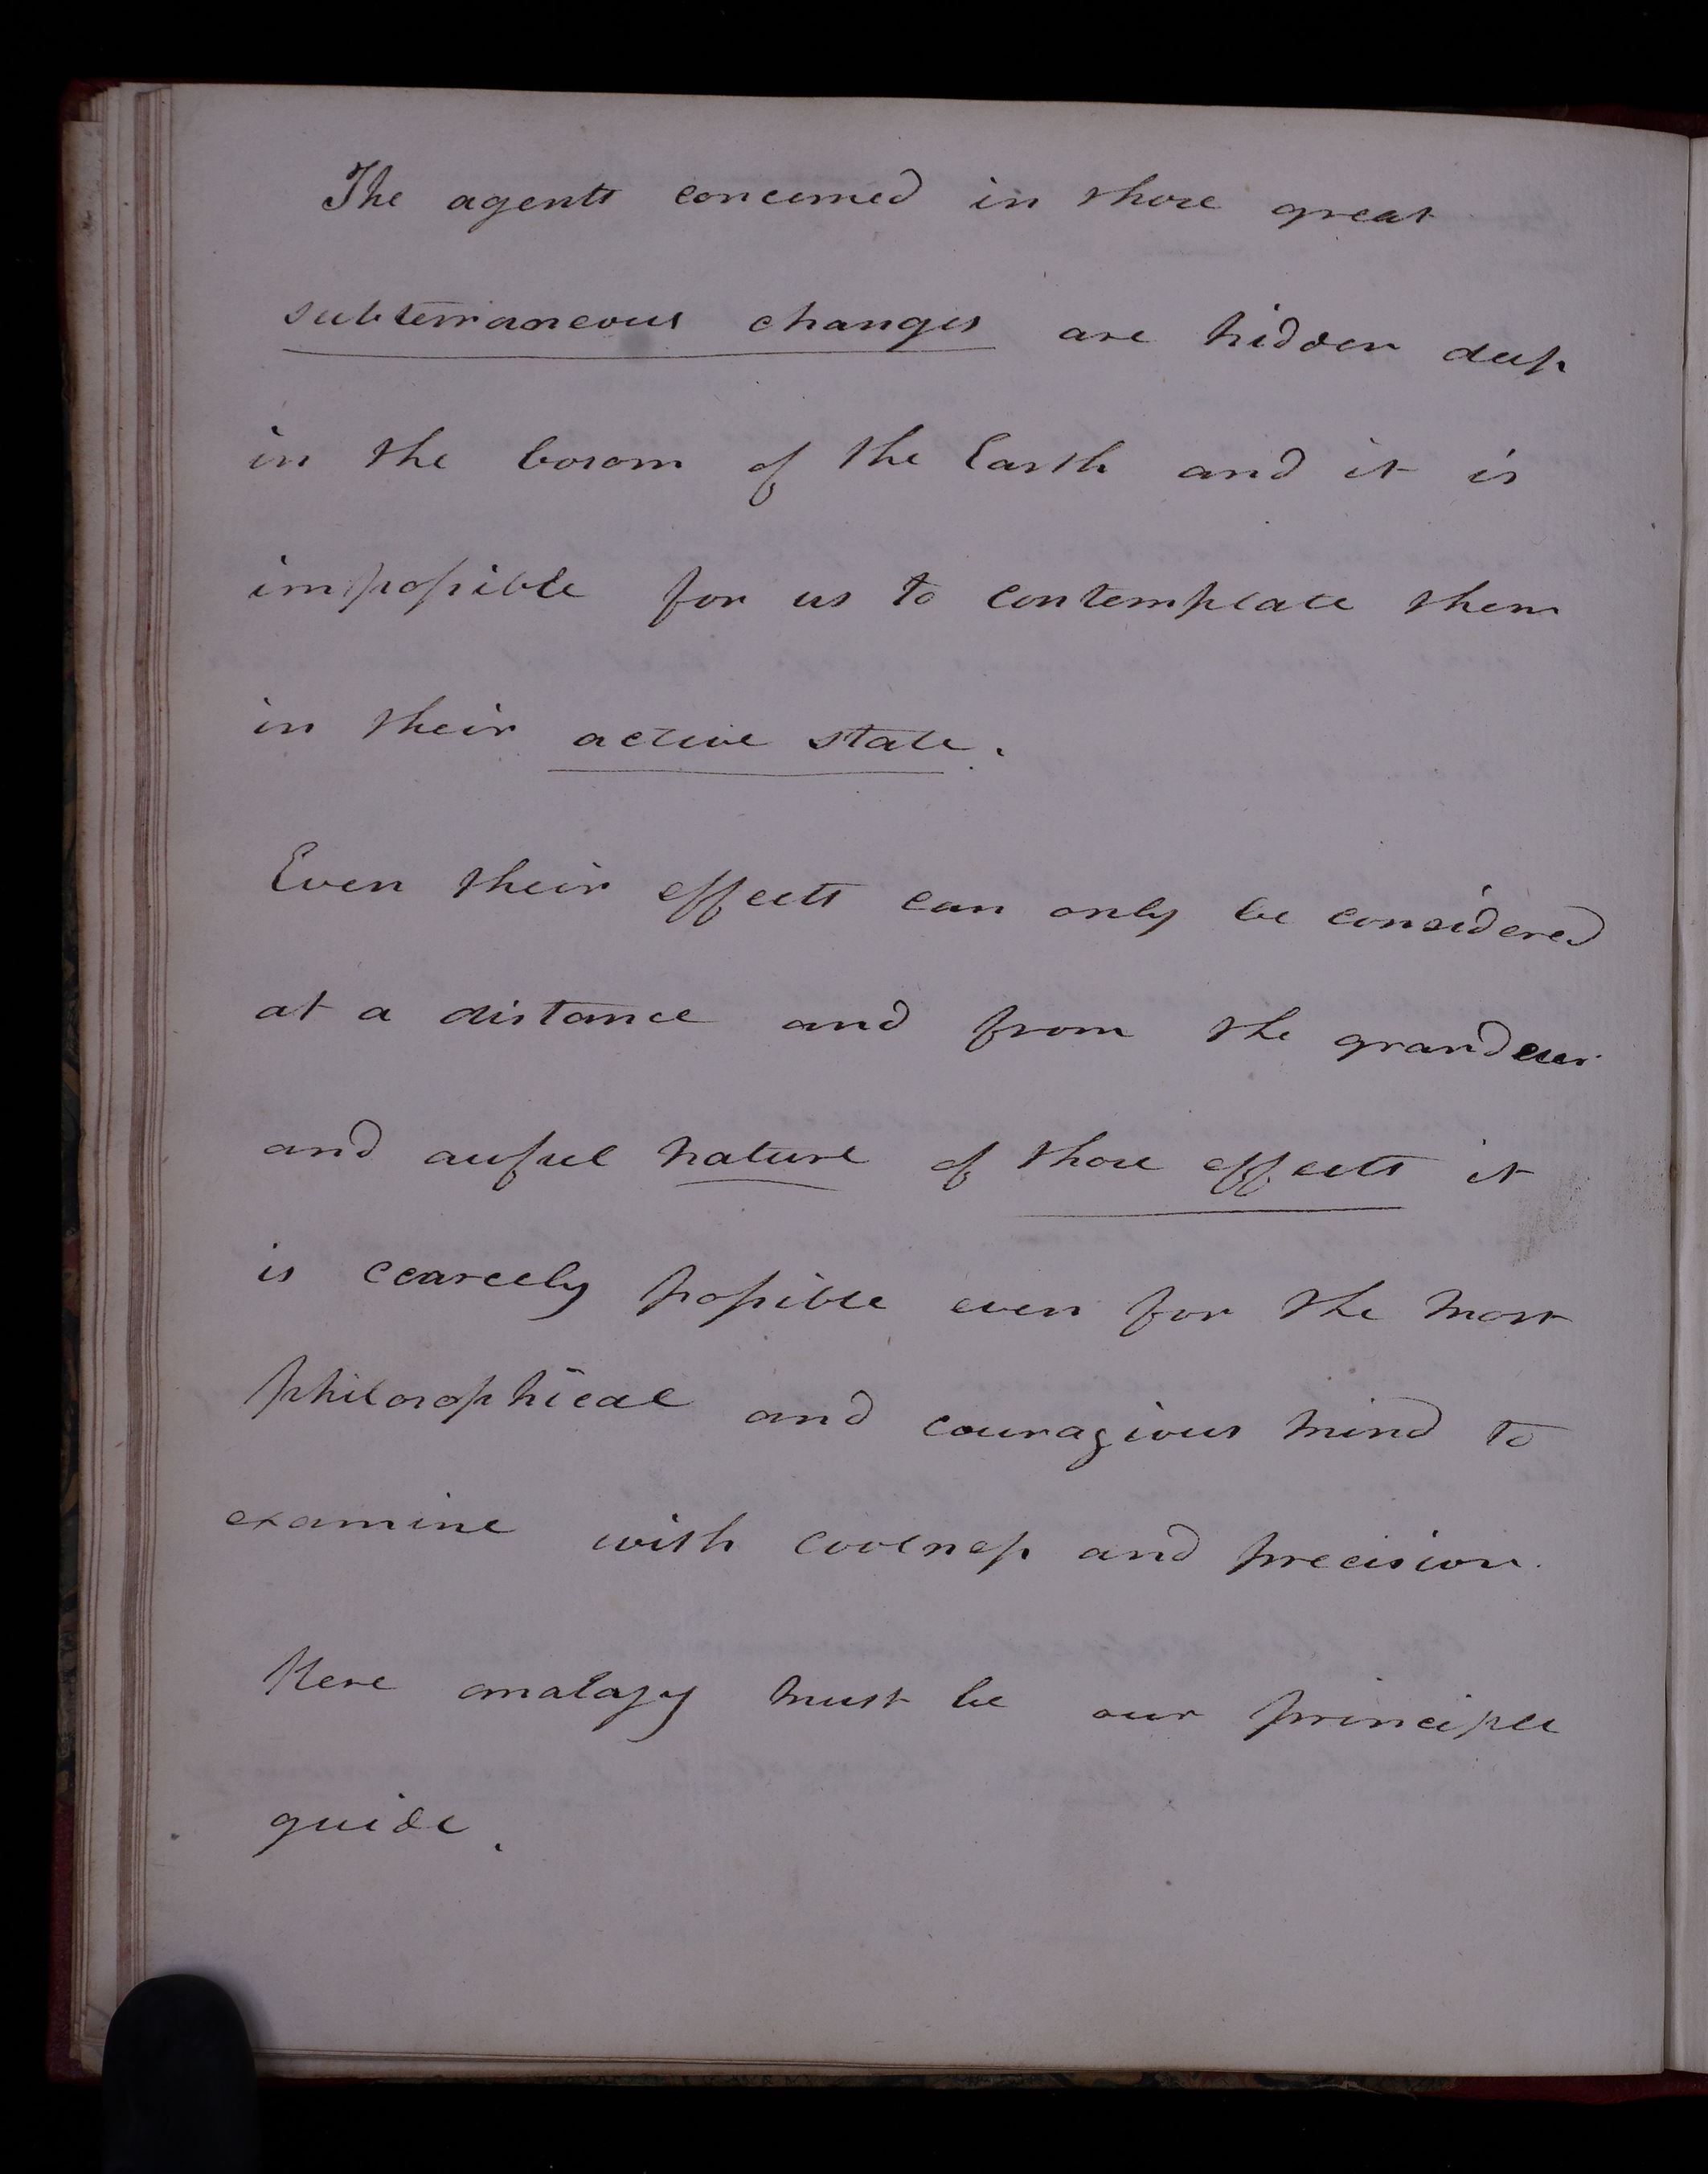 The agents concerned in those great
subterraneous changes are hidden deep
in the bosom of the Earth and it is
impossible for us to contemplate them
in their active state.
Even their effects can only be considered
at a distance and from the grandeur
and awful nature of those effects it
is ccarcely possible even for the most
philosophical and couragious mind to
examine with coolness and precision.
Here analagy must be our principle
guide.